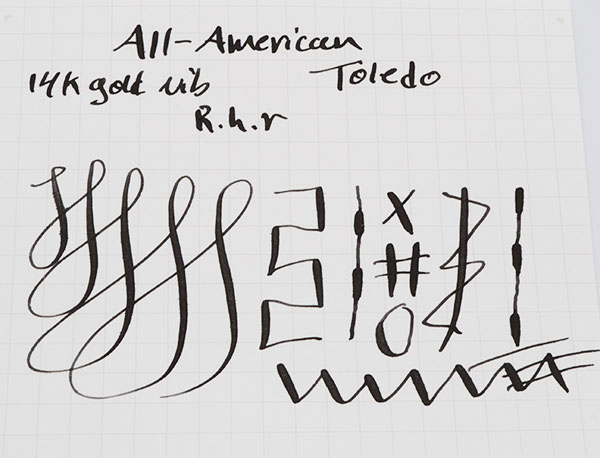 All-American
14K gold nib Toledo
R.h.r
X
#
O